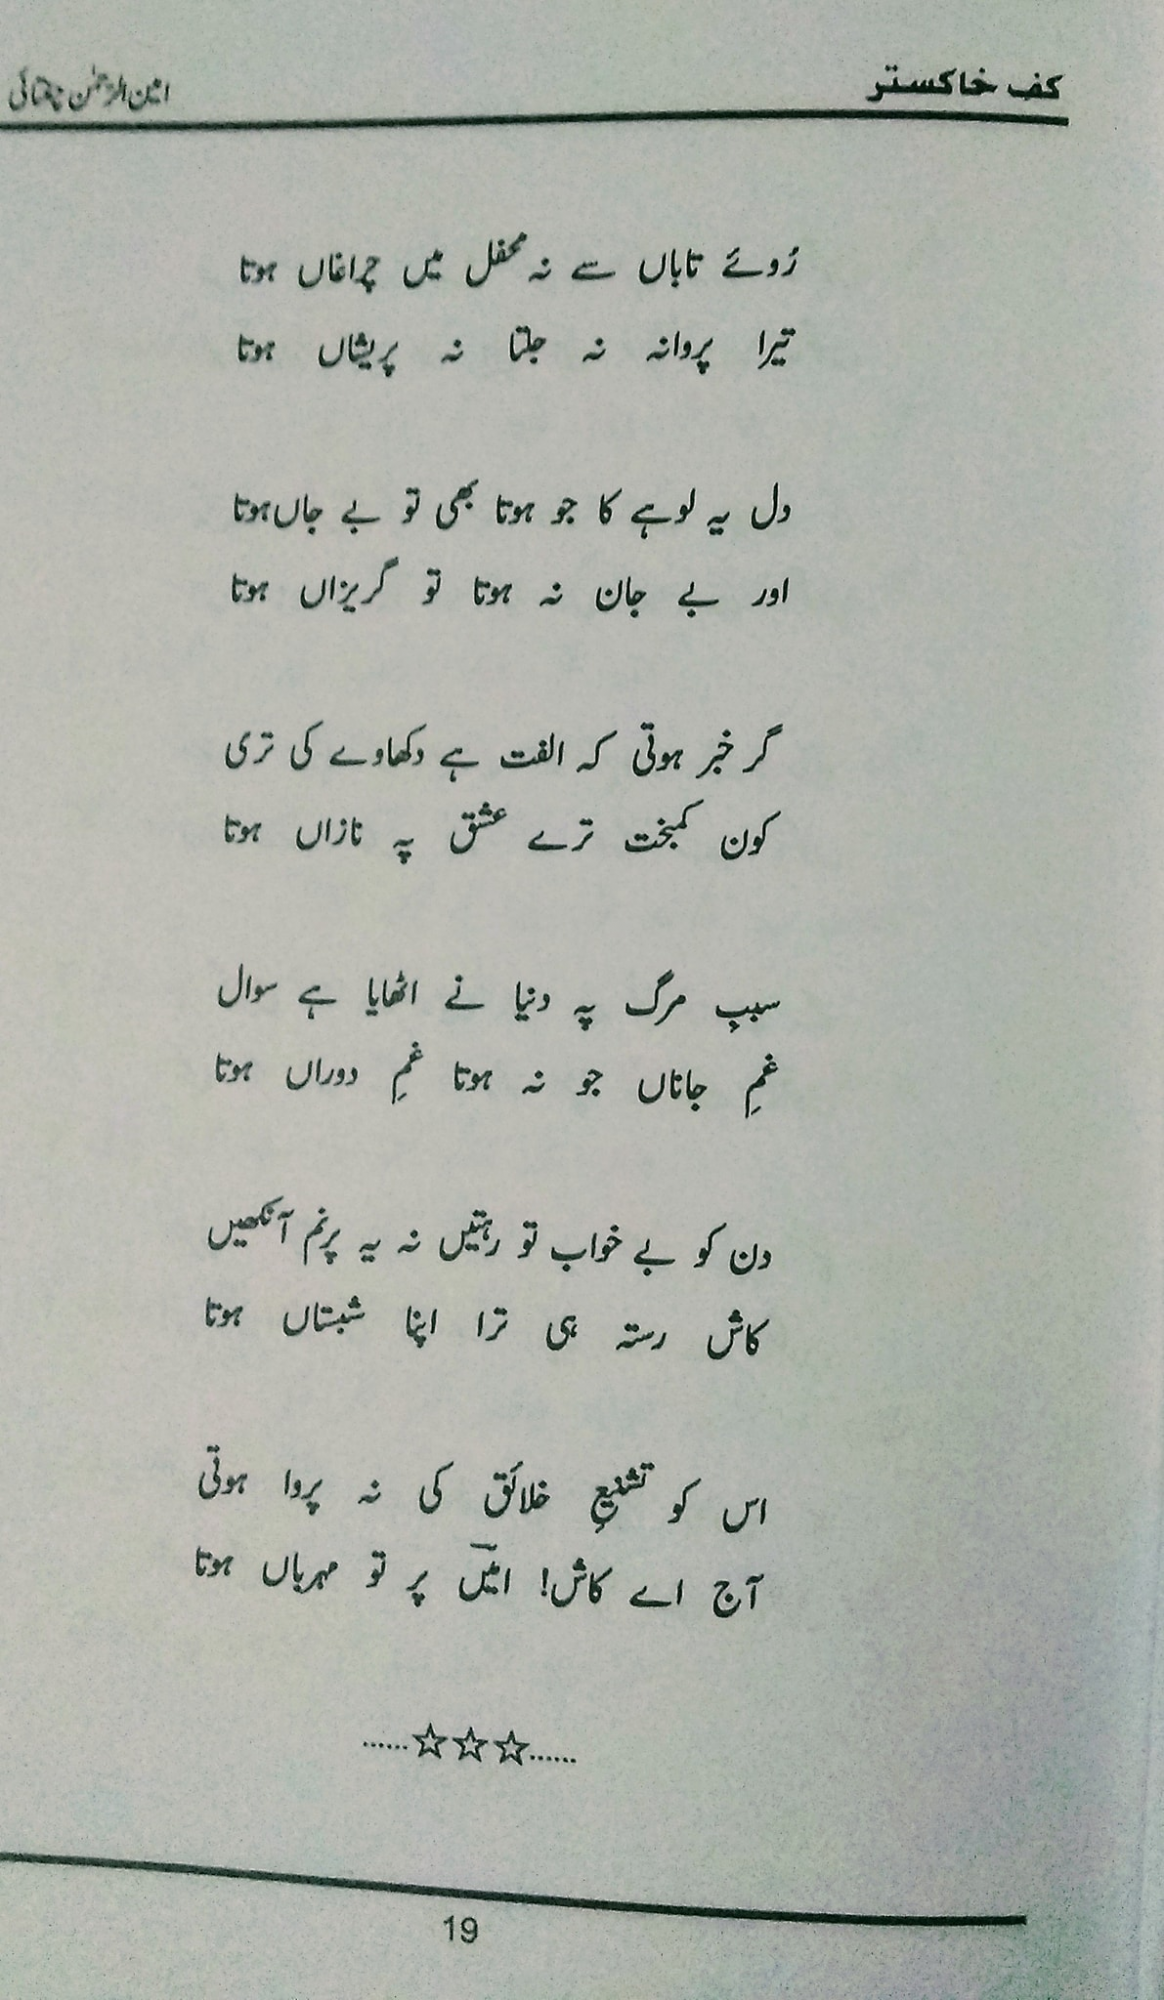 کف خاکستر
امین الرحمٰن چغتائی
رُوئے تاباں سے نہ محفل میں چراغاں ہوتا
تیرا پروانہ نہ جلتا نہ پریشاں ہوتا
دل یہ لوہے کا جو ہوتا بھی تو بے جاں ہوتا
اور بے جان نہ ہوتا تو گریزاں ہوتا
گر خبر ہوتی کہ الفت ہے دکھاوے کی تری
کون کمبخت ترے عشق پہ نازاں ہوتا
سببِ مرگ پہ دنیا نے اٹھایا ہے سوال
غمِ جاناں جو نہ ہوتا غمِ دوراں ہوتا
دن کو بے خواب تو رہتیں نہ یہ پرنم آنکھیں
کاش رستہ ہی ترا اپنا شبستاں ہوتا
اس کو تشنیعِ خلائق کی نہ پروا ہوتی
آج اے کاش! امیںؔ پر تو مہرباں ہوتا
......☆☆☆......
19